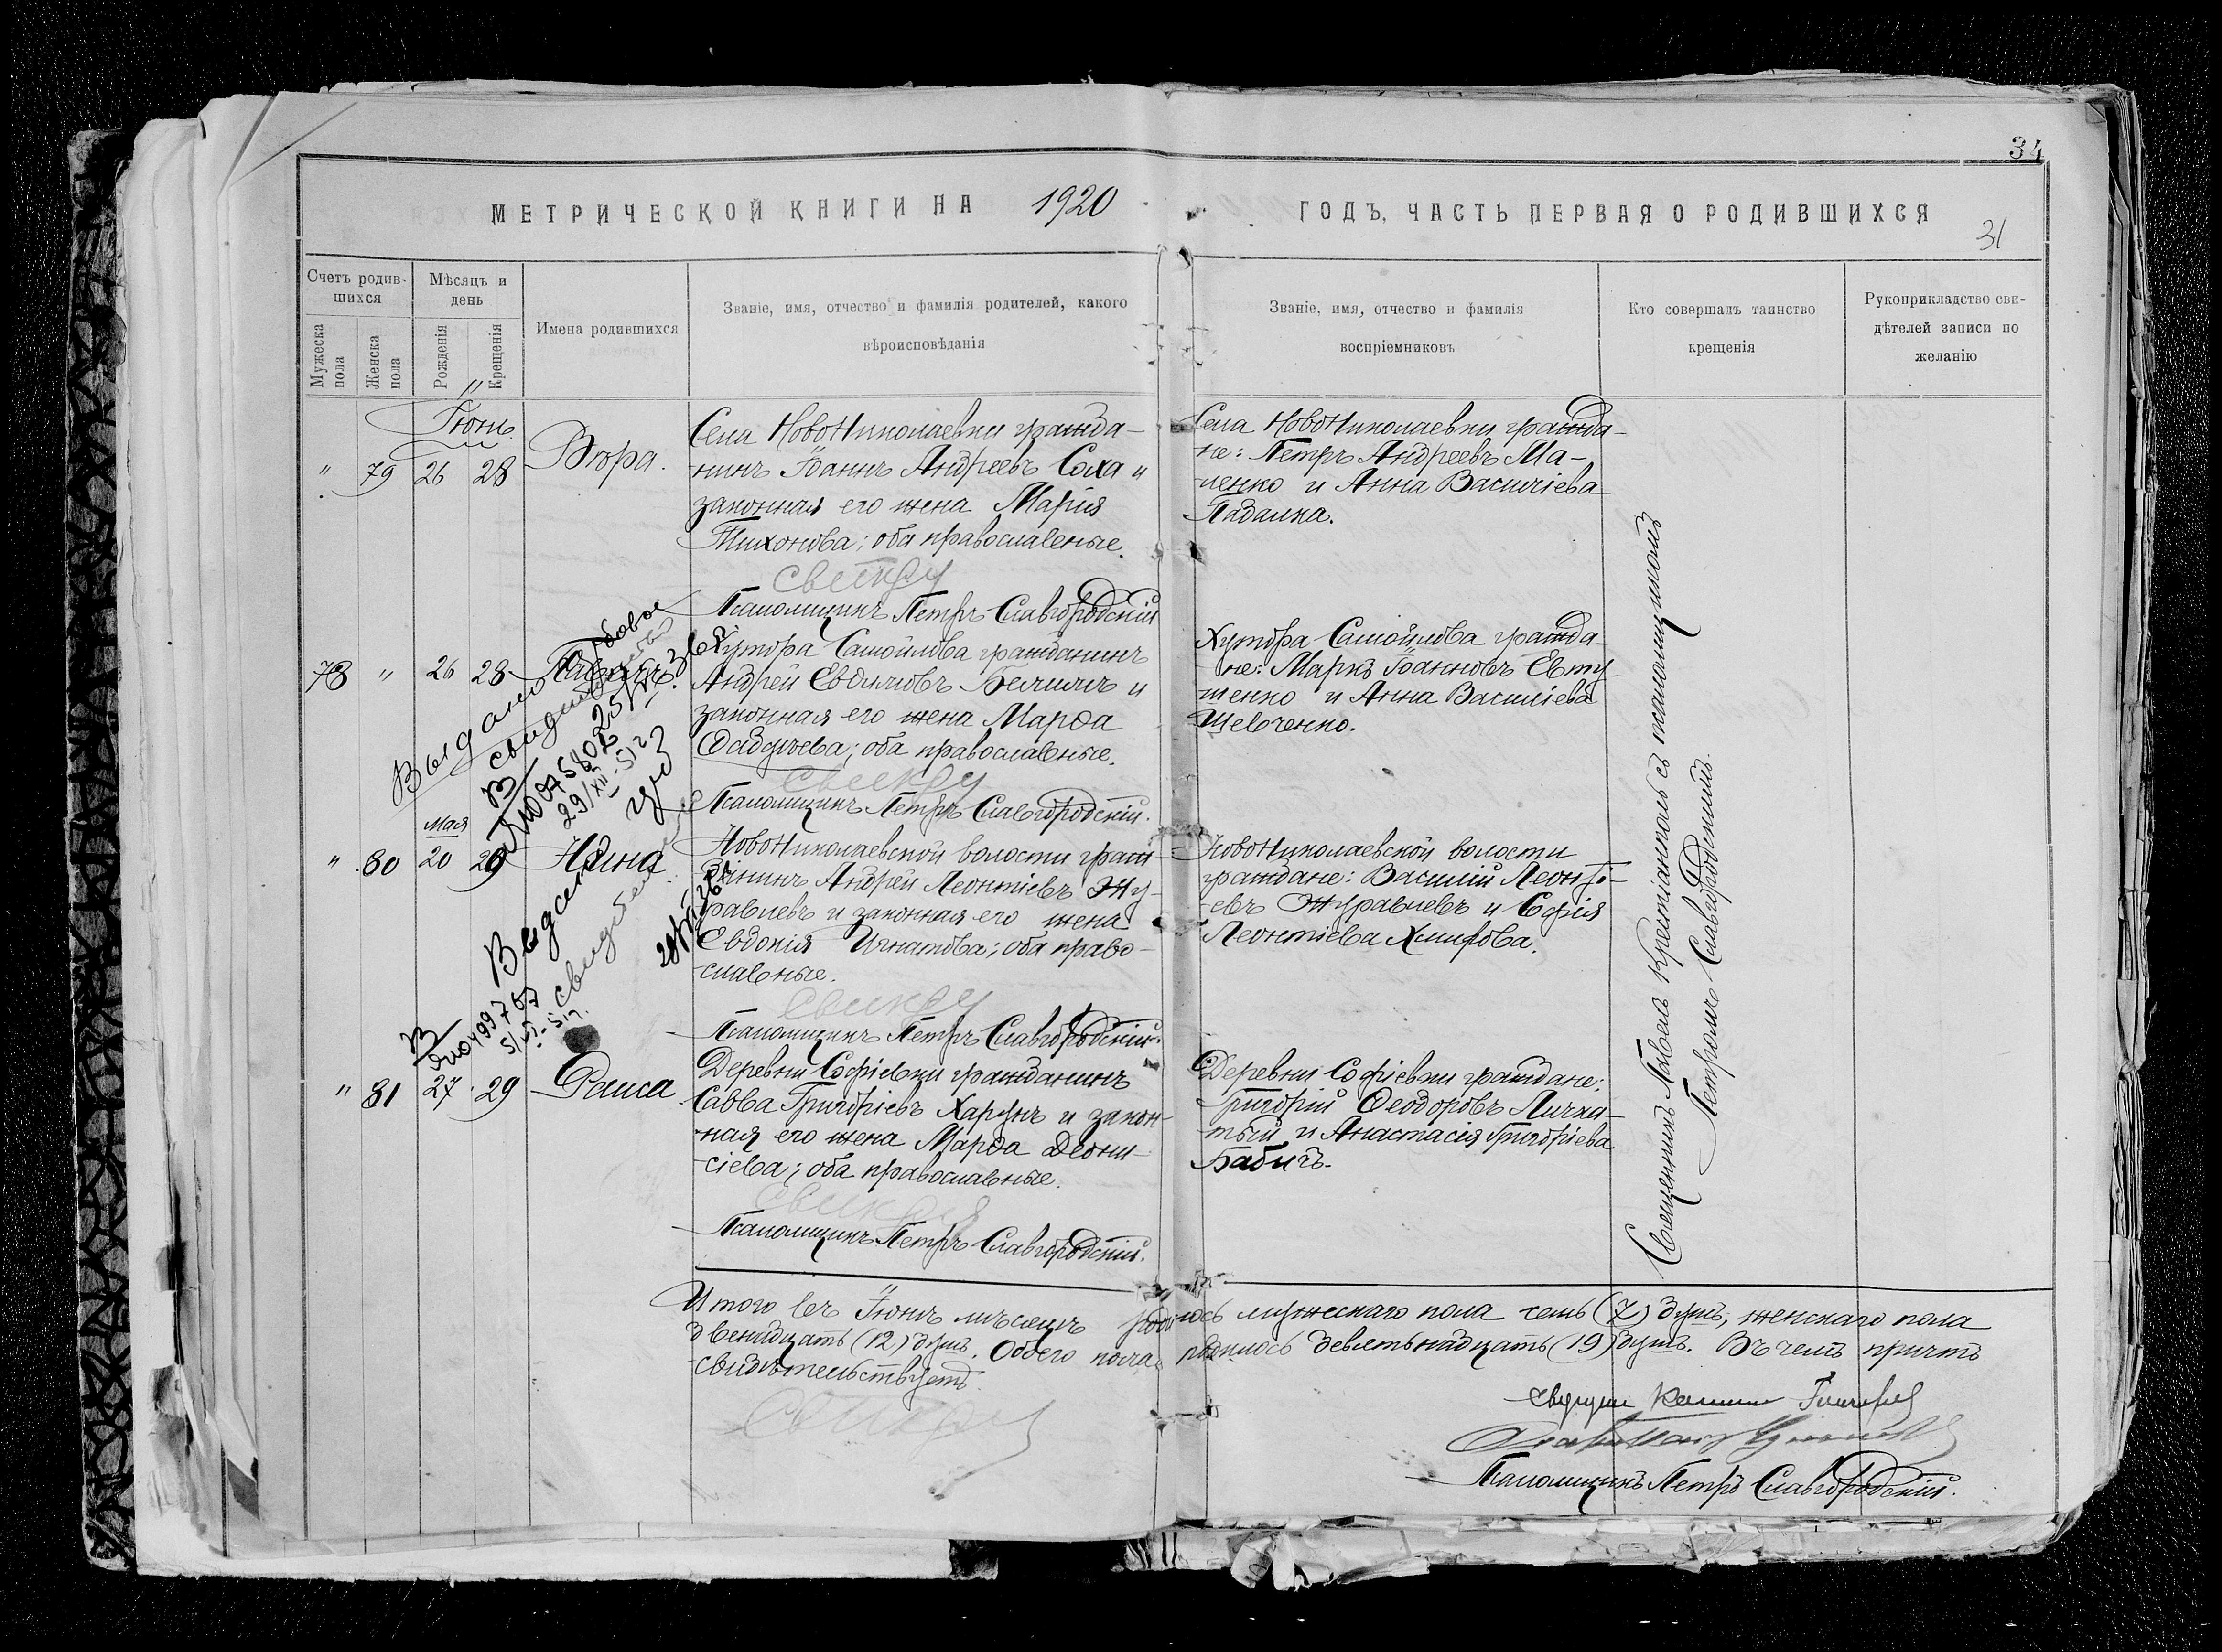 34
МЕТРИЧЕСКОЙ КНИГИ НА 1920 ГОДЪ, ЧАСТЬ ПЕРВАЯ О РОДИВШИХСЯ
31
Счетъ родив-
шихся
Мужеска пола
Женска пола
Мѣсяцъ и
день
Рожденія
Крещенія
Имена родившихся
Званіе, имя, отчество и фамилія родителей, какого
вѣроисповѣданія
Званіе, имя, отчество и фамилія
воспріемниковъ
Кто совершалъ таинство
крещенія
Рукоприкладство сви-
дѣтелей записи по
желанію
Іюнь
" 79 26 28 Вѣра.
Села НовоНиколаевки гражда-
нинъ Іоаннъ Андреевъ Соха и
законная его жена Марія
Тихонова; оба православные.
свѣтқу
Псаломщикъ Петръ Славгородскій
Села НовоНиколаевки гражда-
не: Петръ Андреевъ Ма-
ленко и Анна Василіева
Падалка.
78 " 26 28
Хутора Самойлова гражданинъ
Андрей Евдимовъ Белимъ и
законная его жена Марѳа
Фадѣева; оба православные.
Псаломщикъ Петръ Славгородскій.
Хутора Самойлова гражда-
не: Маркъ Іоанновъ Евту-
шенко и Анна Василіева
Шевченко.
Выдано
29/XII-51г
Мая
" 80 20 29 Нина
НовоНиколаевской волости граж-
данинъ Андрей Леонтіевъ Жу-
равлевъ и законная его жена
Евдокія Игнатова; оба право-
славные.
Псаломщикъ Петръ Славгородскій.
НовоНиколаевской волости
граждане: Василій Леонті-
евъ Журавлевъ и Софія
Леонтіева Хмирова.
" 81 27 29 Раиса
Деревни Софіевки гражданинъ
Савва Григоріевъ Харунъ и закон-
ная его жена Марѳа Діони-
сіева; оба православные.
Псаломщикъ Петръ Славгородскій.
Деревни Софіевки граждане:
Григорій Ѳеодоровъ Личка-
тый и Анастасія Григоріева
Бабичъ.
Священникъ Павелъ Крестіанполь съ псаломщикомъ
Петромъ Славгородскимъ.
Итого въ Іюнѣ мѣсяцѣ родилось мужескаго пола семь (7) душъ, женскаго пола
двенадцать (12) душъ. Обоего пола родилось девятьнадцать (19) душъ. Въ чемъ причтъ
свидѣтельствуетъ
Псаломщикъ Петръ Славгородскій.